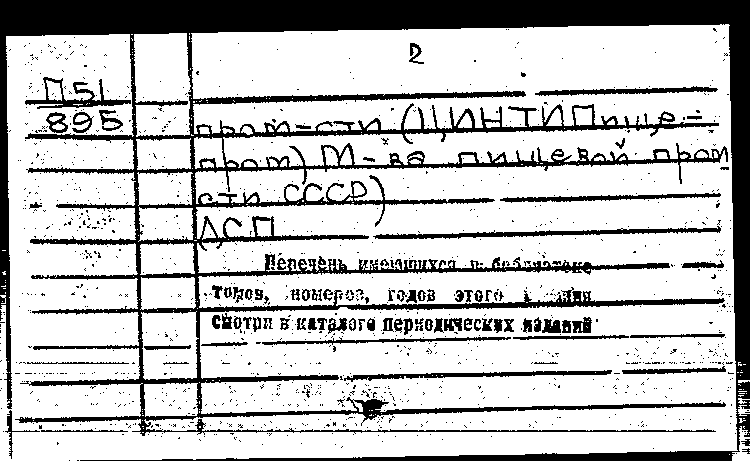 2
П51
895
пром-сти (ЦИНТИПище-
пром) М-ва пищевой пром
сти СССР)
ДСП
Перечень имеющихся в библиотеке
томов, номеров, годов этого
смотри в каталоге периодических изданий